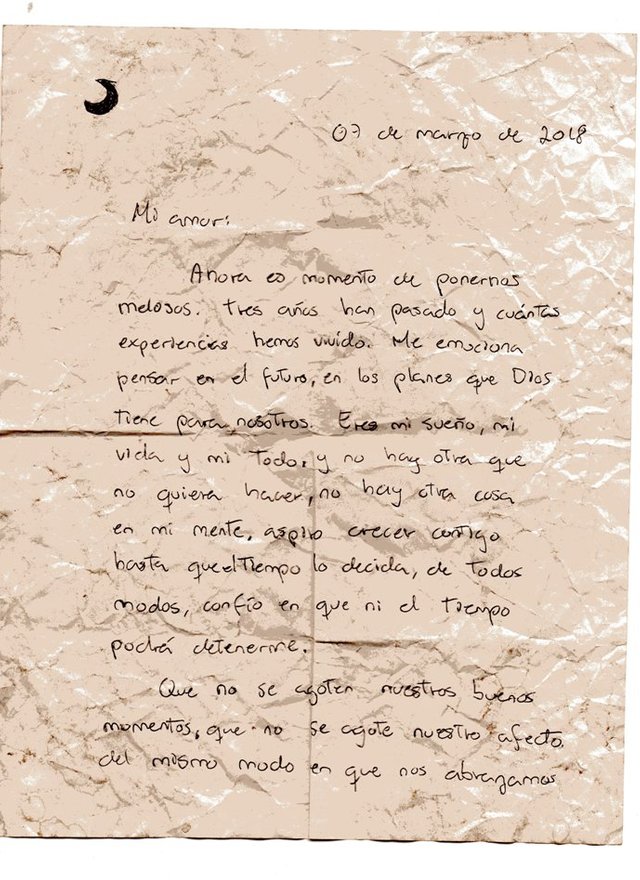 07 de marzo de 2018
Mi amor:
Ahora es momento de ponernos
melosos. tres años han pasado y cuántas
experiencias hemos vivido. Me emociona
pensar en el futuro, en los planes que Dios
tiene para nosotros. Eres mi sueño, mi
vida y mi todo, y no hay otra que
no quiera hacer, no hay otra cosa
en mi mente, aspiro crecer contigo
hasta que el tiempo lo decida, de todos
modos, confío en que ni el tiempo
podrá detenerme.
Que no se agoten nuestros buenos
momentos, que no se agote nuestro afecto.
del mismo modo en que nos abrazamos